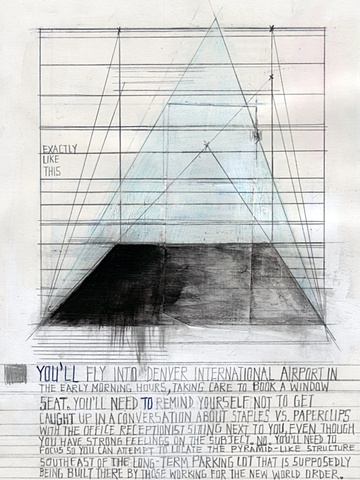 EXACTLY
LIKE
THIS
YOU'LL FLY INTO DENVER INTERNATIONAL AIRPORT IN
THE EARLY MORNING HOURS, TAKING CARE TO BOOK A WINDOW
SEAT. YOU'LL NEED TO REMIND YOURSELF NOT TO GET
CAUGHT UP IN A CONVERSATION ABOUT STAPLES VS. PAPERCLIPS
WITH THE OFFICE RECEPTIONIST SITTING NEXT TO YOU, EVEN THOUGH
YOU HAVE STRONG FEELINGS ON THE SUBJECT. NO. YOU'LL NEED TO
FOCUS SO YOU CAN ATTEMPT TO LOCATE THE PYRAMID-LIKE STRUCTURE
SOUTHEAST OF THE LONG-TERM PARKING LOT THAT IS SUPPOSEDLY
BEING BUILT THERE BY THOSE WORKING FOR THE NEW WORLD ORDER.